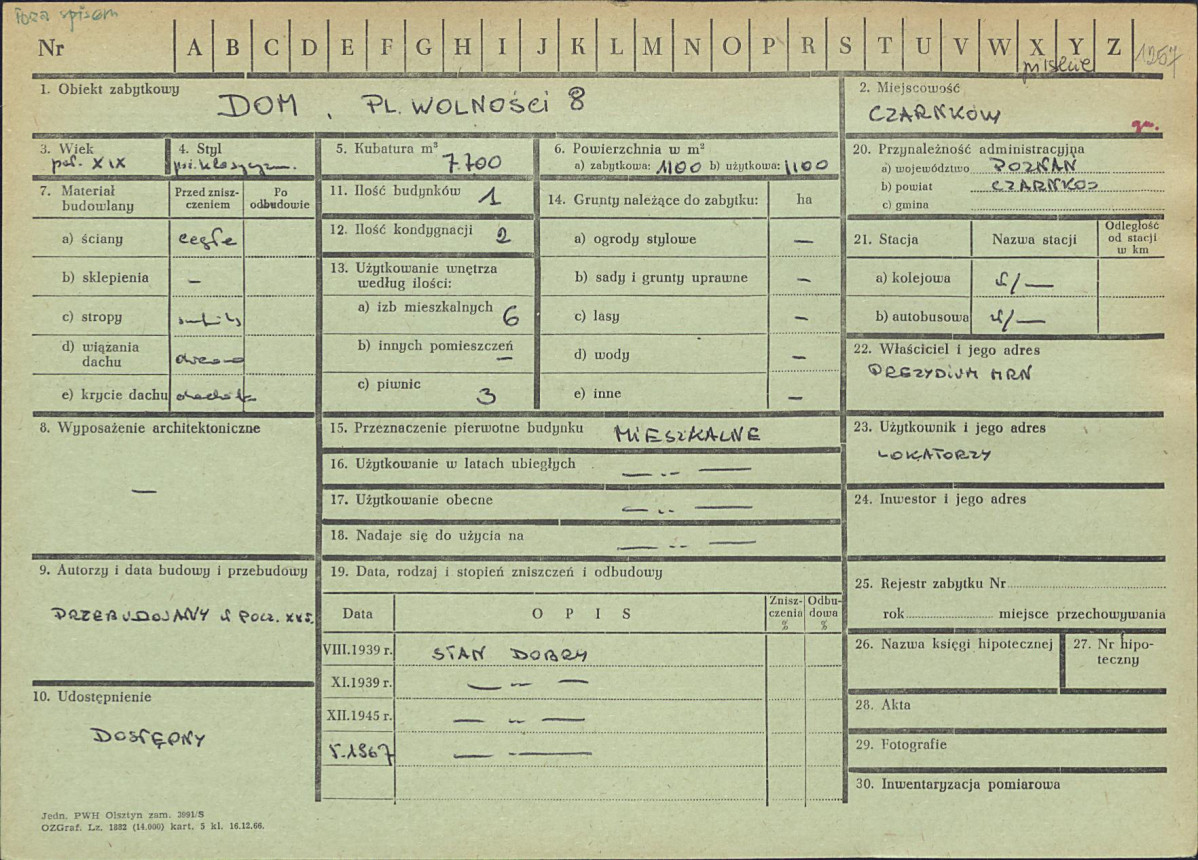 Poza spisem
Nr A B C D E F G H I J K L M N O P R S T U V W X Y Z 1257
miejskie
1. Obiekt zabytkowy DOM, PL. WOLNOŚCI 8
2. Miejscowość
CZARNKÓW
gm.
3. Wiek
poł. XIX
4. Styl
5. Kubatura m³
7.700
6. Powierzchnia w m²
a) zabytkowa: 1100 b) użytkowa: 1100
20. Przynależność administracyjna
a) województwo POZNAŃ
b) powiat CZARNKÓW
c) gmina
7. Materiał budowlany
Przed zniszczeniem
Po odbudowie
a) ściany cegła
b) sklepienia —
c) stropy
d) wiązania dachu drewno
e) krycie dachu dachówka
11. Ilość budynków 1
12. Ilość kondygnacji 2
13. Użytkowanie wnętrza
według ilości:
a) izb mieszkalnych 6
b) innych pomieszczeń —
c) piwnic 3
14. Grunty należące do zabytku: ha
a) ogrody stylowe —
b) sady i grunty uprawne —
c) lasy —
d) wody —
e) inne —
21. Stacja Nazwa stacji
Odległość
od stacji
w km
a) kolejowa w/—
b) autobusowa w/—
22. Właściciel i jego adres
PREZYDIUM MRN
8. Wyposażenie architektoniczne
—
15. Przeznaczenie pierwotne budynku MIESZKALNE
16. Użytkowanie w latach ubiegłych — .. —
17. Użytkowanie obecne — .. —
18. Nadaje się do użycia na — .. —
23. Użytkownik i jego adres
LOKATORZY
24. Inwestor i jego adres
9. Autorzy i data budowy i przebudowy
PRZEBUDOWANY W POCZ. XX w.
19. Data, rodzaj i stopień zniszczeń i odbudowy
Data O P I S
Zniszczenia %
Odbudowa %
VIII.1939 r. STAN DOBRY
XI.1939 r. — „ —
XII.1945 r. — „ —
V.1967 — „ —
25. Rejestr zabytku Nr
rok miejsce przechowywania
26. Nazwa księgi hipotecznej
27. Nr hipoteczny
10. Udostępnienie
DOSTĘPNY
28. Akta
29. Fotografie
30. Inwentaryzacja pomiarowa
Jedn. PWH Olsztyn zam. 3991/S
OZGraf. Lz. 1882 (14.000) kart. 5 kl. 16.12.66.